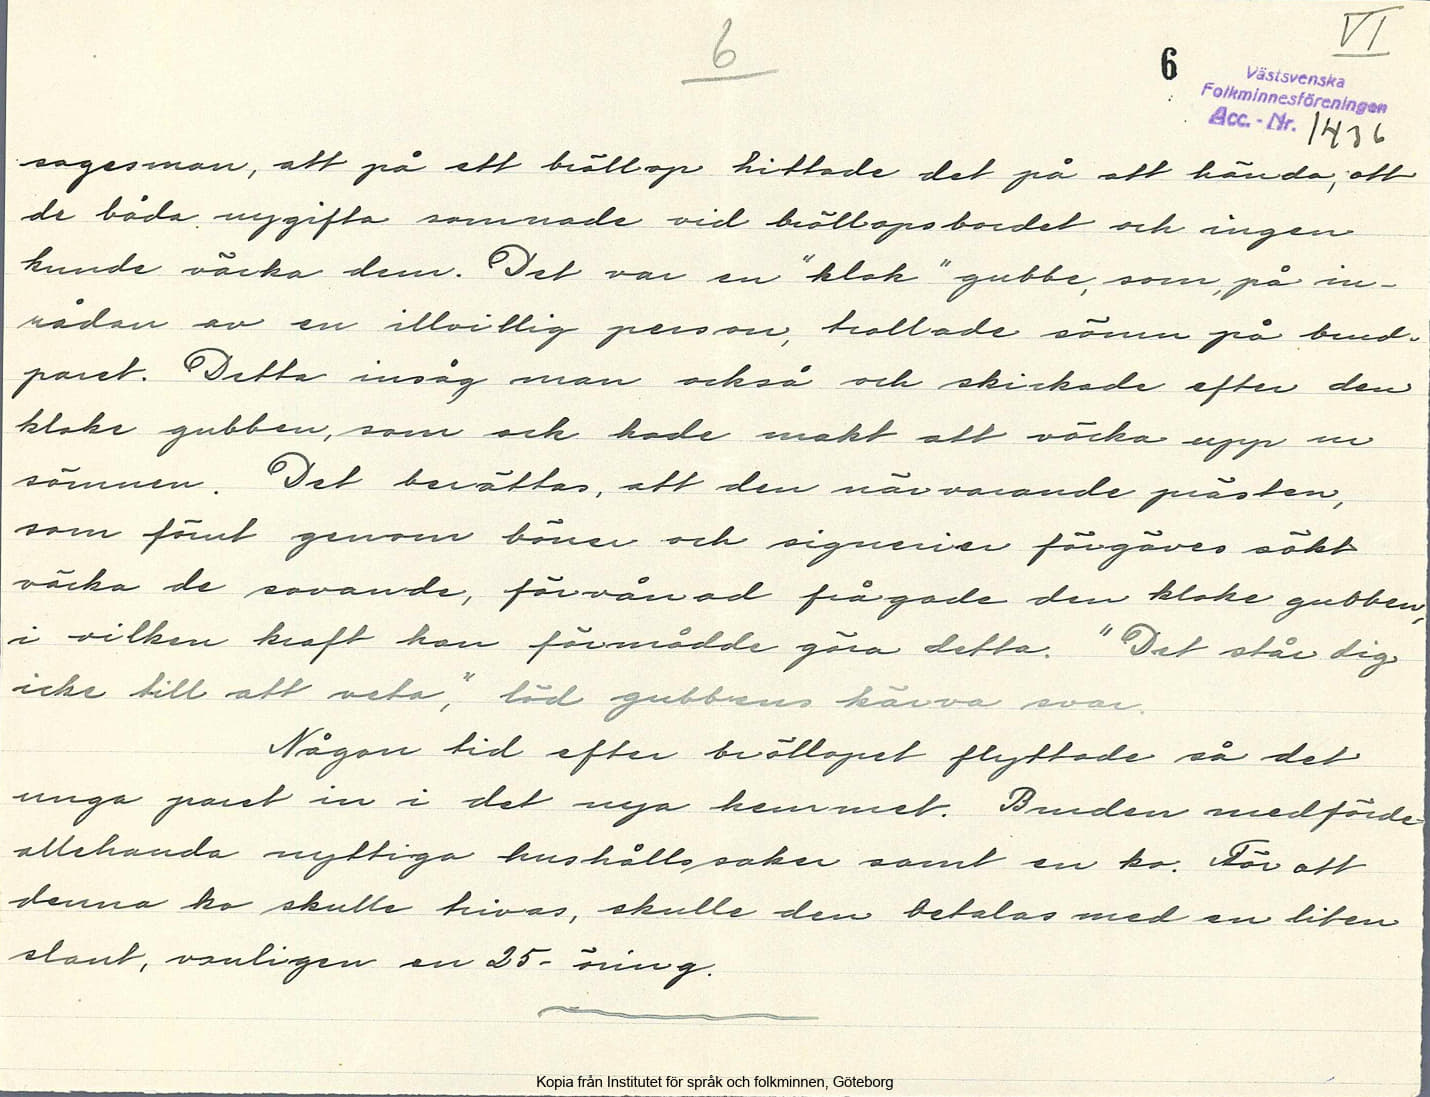 6
VI
6
Västsvenska
Folkminnesföreningen
Acc. - Nr. 1436
sagesman, att på ett bröllop hittade det på att hända, att
de båda nygifta somnade vid bröllopsbordet och ingen
kunde väcka dem. Det var en "klok" gubbe, som, på in-
rådan av en illvillig person, trollade sömn på brud-
paret. Detta insåg man också och skickade efter den
kloke gubben, som ock hade makt att väcka upp ur
sömnen. Det berättas, att den närvarande prästen,
som förut genom böner och signerier förgäves sökt
väcka de sovande, förvånad frågade den kloke gubben,
i vilken kraft han förmådde göra detta. "Det står dig
icke till att veta," löd gubbens kärva svar.
Någon tid efter bröllopet flyttade så det
unga paret in i det nya hemmet. Bruden medförde
allehanda nyttiga hushållssaker samt en ko. För att
denna ko skulle trivas, skulle den betalas med en liten
slant, vanligen en 25-öring.
Kopia från Institutet för språk och folkminnen, Göteborg